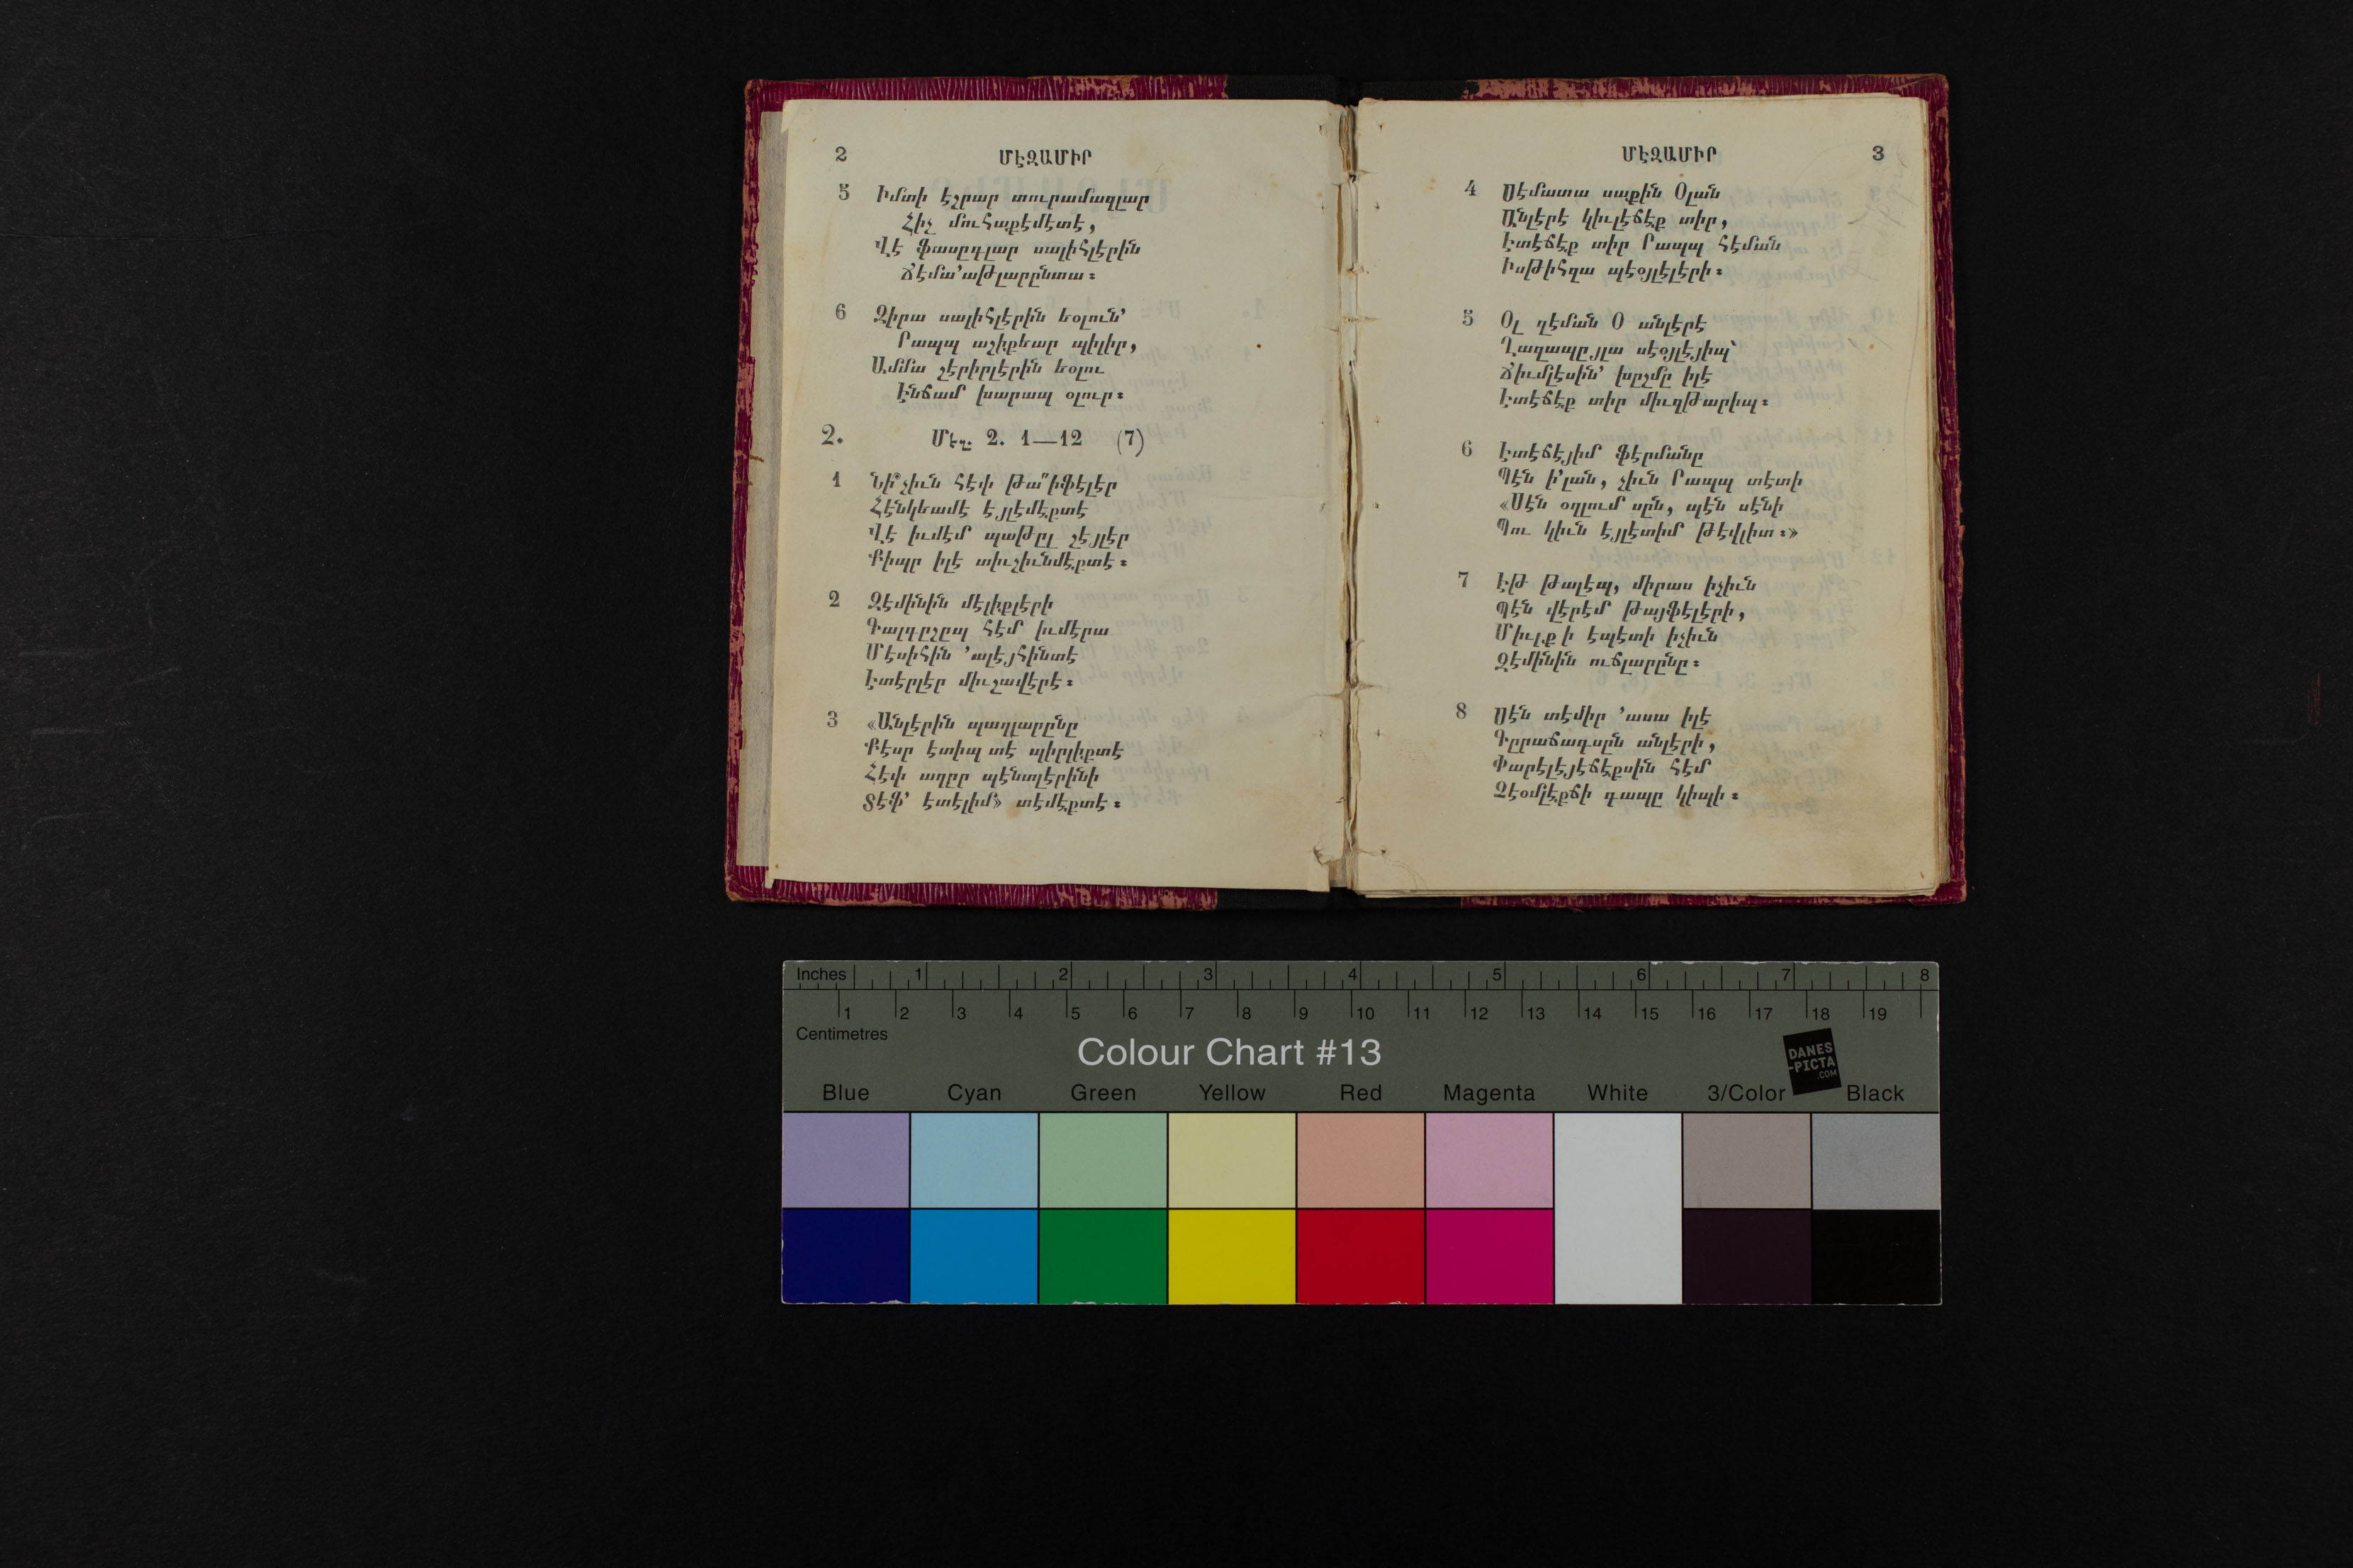 2 ՄԷԶԱՄԻՐ
5 Իմտի էշրար տուրամազլար
Հիչ մուհաքէմէտէ,
Վէ ֆասըգլար սալիհլէրին
Ճէմա՚աթլարընտա։
6 Զիրա սալիհլէրին եօլուն՚
Րապպ աշիքեար պիլիր,
Ամմա շէրիրլէրին եօլու
Էնճամ խարապ օլուր։
2. Մէզ. 2. 1—12 (7)
1 Նի՞չիւն հէփ թա՞իֆէլէր
Հէնկեամէ էյլէմէքտէ
Վէ իւմէմ պաթըլ շէյլէր
Քիպր իլէ տիւշիւնմէքտէ։
2 Զէմինին մէլիքլէրի
Գալգըշըպ հէմ իւմէրա
Մէսիհին ՚ալէյհինտէ
Էտէրլէր միւշավէրէ։
3 «Անլէրին պաղլարընը
Քէսր էտիպ տէ պիրլիքտէ
Հէփ աղըր պէնտլէրինի
Տէֆ՚ էտէլիմ» տէմէքտէ։
ՄԷԶԱՄԻՐ 3
4 Սէմատա սաքին Օլան
Անլէրէ կիւլէճէք տիր,
Էտէճէք տիր Րապպ հէման
Իսթիհզա պէօյլէլէրի։
5 Օլ զէման Օ անլէրէ
Ղազապըյլա սէօյլէյիպ՝
Ճիւմլէսին՚ խըշմը իլէ
Էտէճէք տիր միւզթարիպ։
6 Էտէճէյիմ ֆէրմանը
Պէն ի՚լան, չիւն Րապպ տէտի
«Սէն օղլում սըն, պէն սէնի
Պու կիւն էյլէտիմ թէվլիտ։»
7 Էթ թալէպ, միրաս իչիւն
Պէն վէրէմ թայֆէլէրի,
Միւլքի էպէտի իչիւն
Զէմինին ուճլարընը։
8 Սէն տէմիր ՚ասա իլէ
Գըրաճագսըն անլէրի,
Փարէլէյէճէքսին հէմ
Չէօմլէքճի գապը կիպի։
Inches 1 2 3 4 5 6 7 8
1 2 3 4 5 6 7 8 9 10 11 12 13 14 15 16 17 18 19
Centimetres
Colour Chart #13
DANES
-PICTA
.COM
Blue Cyan Green Yellow Red Magenta White 3/Color Black